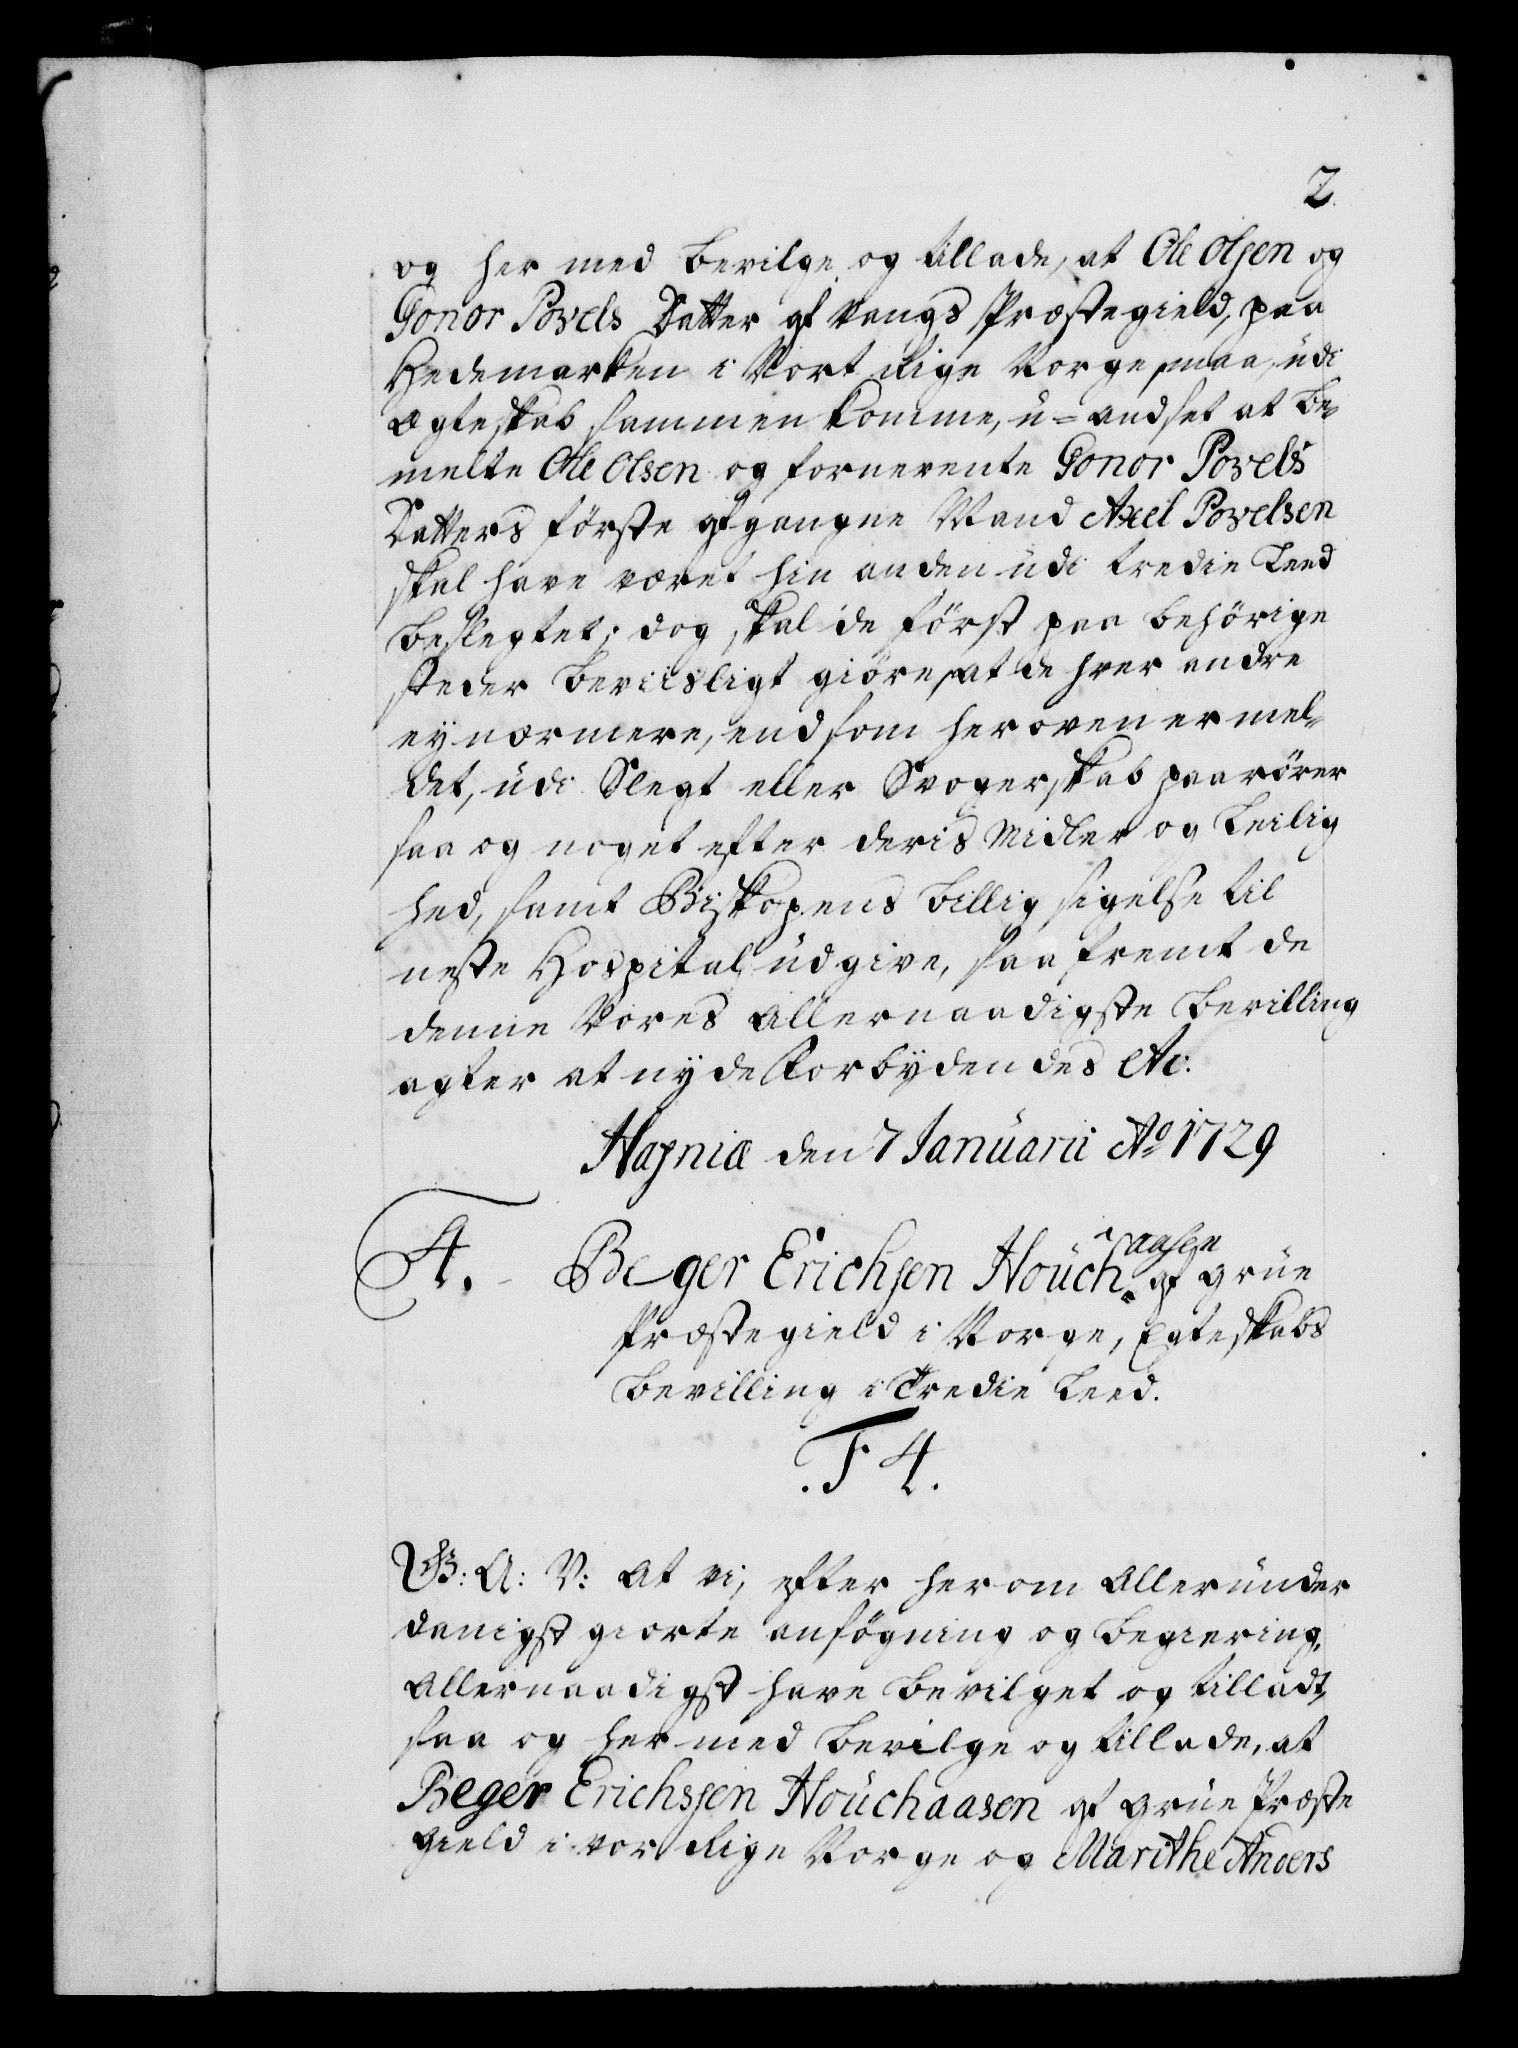 2.
og her med bevilge og tillade, at Ole Olsen og
Gonor Povels Datter af Vangs Præstegield, paa
Hedemarken i Vort Rige Norge, maa udi
Ægteskab sammen komme, u=andset at be„
melte Ole Olsen og fornevente Gonor Povels
Datters förste afgangne Mand Axel Povelsen
skal have været hin anden udi tredie Leed
beslegtet; dog skal de först paa behörige
steder beviisligt giöre, at de hver andre
ey nærmere, end som her oven er mel„
det, udi Slegt eller Svogerskab paarörer
saa og noget efter deris Midler og Leilig
hed, samt Biskopens billig sigelse til
neste Hospital udgive, saa fremt de
denne Vores allernaadigste bevilling
agter at nyde. Forbydendes etc:
Hafniæ den 7 Januarii Ao 1729
4. Beger Erichsen Houchaasen af Grue
Præstegield i Norge, Egteskabs
bevilling i Tredie Leed.
F 4.
G: A: V: At vi, efter herom allerunder
danigst giorte ansögning og begiering,
allernaadigst have bevilget og tilladt,
saa og her med bevilge og tillade, at
Beger Erichssen Houchaasen af Grue Præste
gield i vor Rige Norge og Marithe Anders